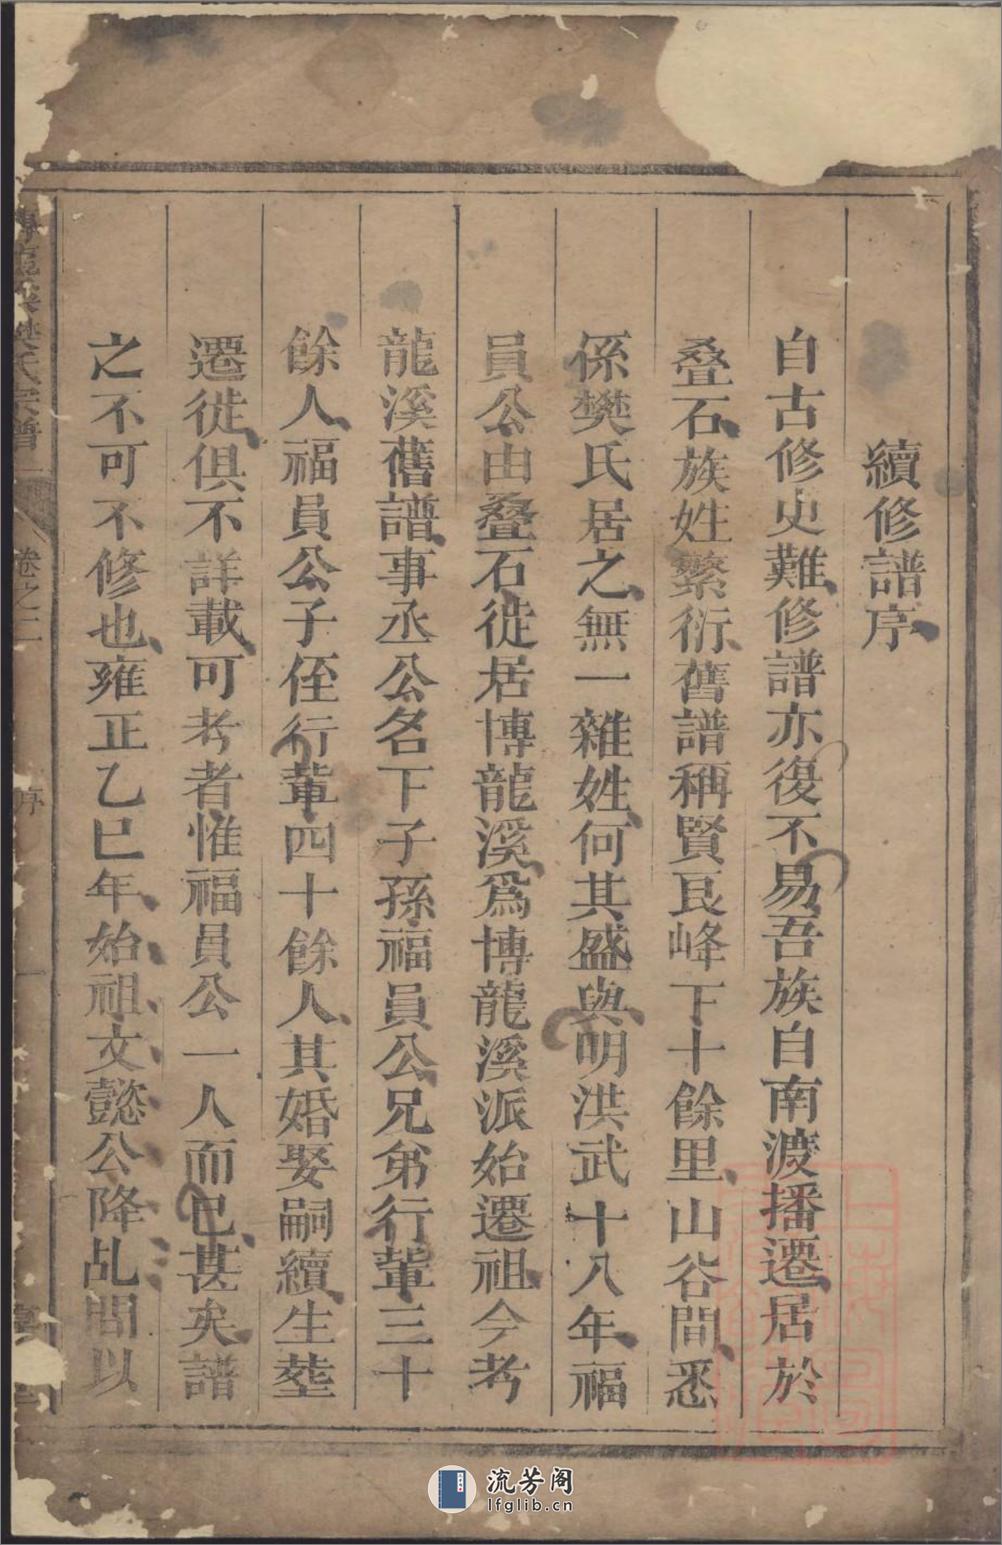 續修譜序
自古修史難修譜亦復不易吾族自南渡播遷居於
叠石族姓繁衍舊譜稱賢良峰下十餘里山谷間悉
係樊氏居之無一雜姓何其盛與明洪武十八年福
員公由叠石徙居博龍溪為博龍溪派始遷祖今考
龍溪舊譜事丞公名下子孫福員公兄弟行輩三十
餘人福員公子侄行輩四十餘人其婚娶嗣續生塟
遷徙俱不詳載可考者惟福員公一人而已甚矣譜
之不可不修也雍正乙巳年始祖文懿公降乩問以
氏宗譜
卷之二
序
一
流芳阁
lfglib.cn